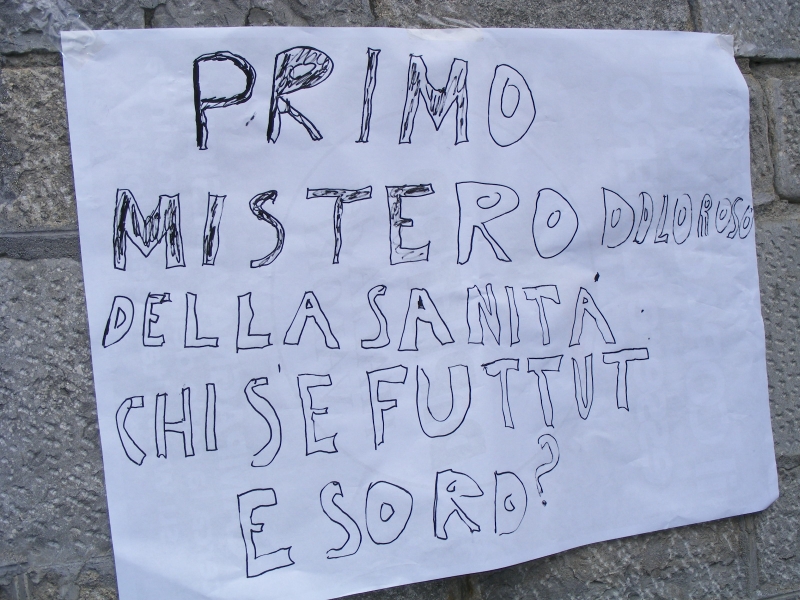 PRIMO
MISTERO DOLOROSO
DELLA SANITÁ
CHI S'E FUTTUT
E SORD?